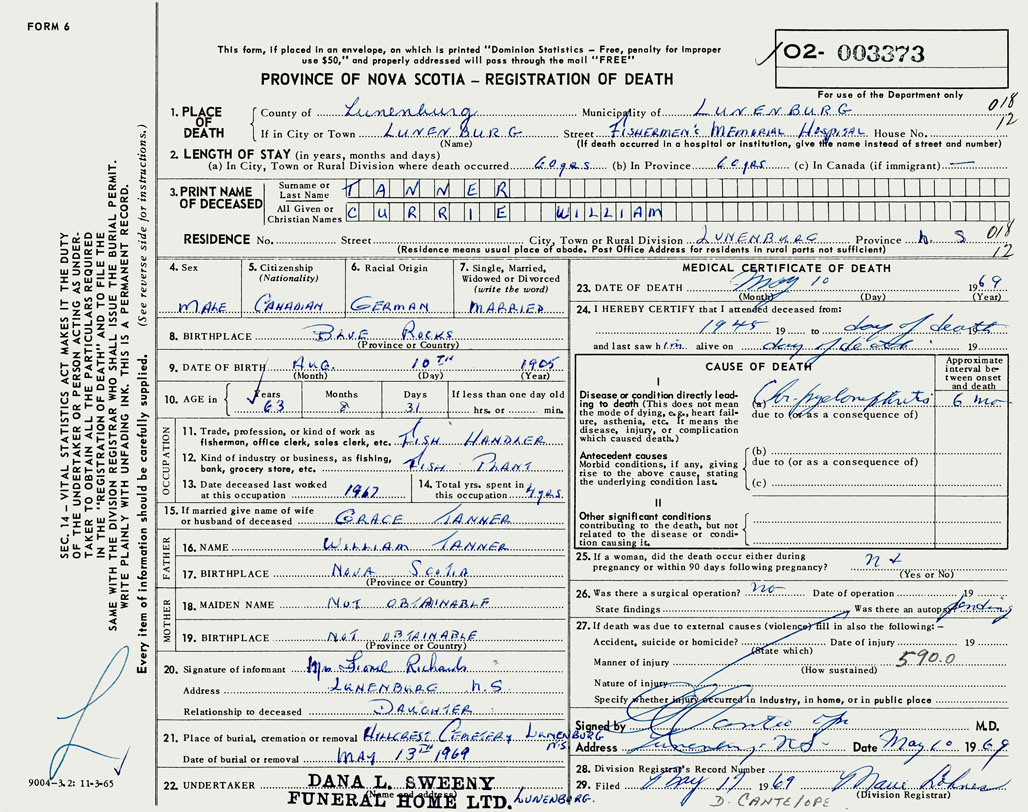 FORM 6
This form, if placed in an envelope, on which is printed "Dominion Statistics – Free, penalty for improper
use $50," and properly addressed will pass through the mail "FREE"
O2- 003373
PROVINCE OF NOVA SCOTIA – REGISTRATION OF DEATH
For use of the Department only
018
12
1. PLACE OF DEATH County of Lunenburg Municipality of LUNENBURG
If in City or Town LUNENBURG Street FISHERMEN'S MEMORIAL HOSPITAL House No.
(Name) (If death occurred in a hospital or institution, give the name instead of street and number)
2. LENGTH OF STAY (in years, months and days)
(a) In City, Town or Rural Division where death occurred 60 yrs (b) In Province 60 yrs (c) In Canada (if immigrant) —
3. PRINT NAME OF DECEASED Surname or Last Name TANNER
All Given or Christian Names CURRIE WILLIAM
RESIDENCE No. Street City, Town or Rural Division LUNENBURG Province N. S 018
(Residence means usual place of abode. Post Office Address for residents in rural parts not sufficient) 12
4. Sex MALE
5. Citizenship (Nationality) CANADIAN
6. Racial Origin GERMAN
7. Single, Married, Widowed or Divorced (write the word) MARRIED
8. BIRTHPLACE BLUE ROCKS
(Province or Country)
9. DATE OF BIRTH AUG. 10TH 1905
(Month) (Day) (Year)
10. AGE in Years Months Days If less than one day old
63 8 31 hrs. or min.
OCCUPATION
11. Trade, profession, or kind of work as fisherman, office clerk, sales clerk, etc. FISH HANDLER
12. Kind of industry or business, as fishing, bank, grocery store, etc. FISH PLANT
13. Date deceased last worked at this occupation 1967
14. Total yrs. spent in this occupation 4 yrs.
15. If married give name of wife or husband of deceased GRACE TANNER
FATHER
16. NAME WILLIAM TANNER
17. BIRTHPLACE NOVA SCOTIA
(Province or Country)
MOTHER
18. MAIDEN NAME NOT OBTAINABLE
19. BIRTHPLACE NOT OBTAINABLE
(Province or Country)
20. Signature of informant Mrs Lionel Richards
Address LUNENBURG N.S
Relationship to deceased DAUGHTER
21. Place of burial, cremation or removal HILLCREST CEMETERY LUNENBURG N.S.
Date of burial or removal MAY 13TH 1969
22. UNDERTAKER DANA L. SWEENY
(Name and address)
FUNERAL HOME LTD. LUNENBURG.
MEDICAL CERTIFICATE OF DEATH
23. DATE OF DEATH May 10 1969
(Month) (Day) (Year)
24. I HEREBY CERTIFY that I attended deceased from:
1945 19 to day of death 19
and last saw him alive on day of death 19
CAUSE OF DEATH
Approximate interval between onset and death
I
Disease or condition directly leading to death (This does not mean the mode of dying, e.g., heart failure, asthenia, etc. It means the disease, injury, or complication which caused death.)
(a) Chr. pyelonephritis 6 mo
due to (or as a consequence of)
Antecedent causes
Morbid conditions, if any, giving rise to the above cause, stating the underlying condition last.
(b)
due to (or as a consequence of)
(c)
II
Other significant conditions
contributing to the death, but not related to the disease or condition causing it.
25. If a woman, did the death occur either during pregnancy or within 90 days following pregnancy?
(Yes or No)
26. Was there a surgical operation? no Date of operation 19
State findings Was there an autopsy pending
27. If death was due to external causes (violence) fill in also the following:–
Accident, suicide or homicide? Date of injury 19
(State which)
Manner of injury 590.0
(How sustained)
Nature of injury
Specify whether injury occurred in Industry, in home, or in public place
Signed by M.D.
Address Lunenburg NS Date May 10 1969
28. Division Registrar's Record Number
29. Filed May 1969
(Division Registrar)
D. CANTELOPE
SEC. 14 – VITAL STATISTICS ACT MAKES IT THE DUTY
OF THE UNDERTAKER OR PERSON ACTING AS UNDER-
TAKER TO OBTAIN ALL THE PARTICULARS REQUIRED
IN THE "REGISTRATION OF DEATH" AND TO FILE THE
SAME WITH THE DIVISION REGISTRAR WHO SHALL ISSUE THE BURIAL PERMIT.
WRITE PLAINLY WITH UNFADING INK. THIS IS A PERMANENT RECORD.
Every item of information should be carefully supplied. (See reverse side for instructions.)
9004-3.2: 11-3-65